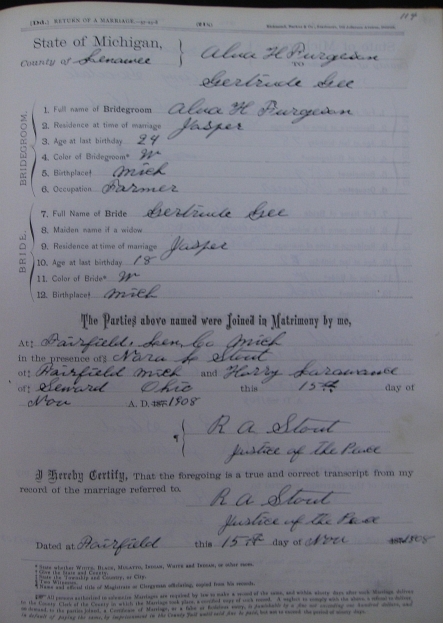 (D1.) RETURN OF A MARRIAGE.
(215)
114
State of Michigan,
County of Lenawee
Alva H Furgeson
TO
Gertrude Gee
BRIDEGROOM.
1. Full name of Bridegroom Alva H Furgeson
2. Residence at time of marriage Jasper
3. Age at last birthday 24
4. Color of Bridegroom* W
5. Birthplace† Mich
6. Occupation Farmer
BRIDE.
7. Full Name of Bride Gertrude Gee
8. Maiden name if a widow
9. Residence at time of marriage Jasper
10. Age at last birthday 18
11. Color of Bride* W
12. Birthplace† Mich
The Parties above named were Joined in Matrimony by me,
At‡ Fairfield, Len. Co Mich
in the presence of§ Nora Stout
of‡ Fairfield Mich and Harry
of‡ Seward Ohio this 15th day of
Nov A. D. 1908
R A Stout
Justice of the Peace
I Hereby Certify, That the foregoing is a true and correct transcript from my
record of the marriage referred to.
R A Stout
Justice of the Peace
Dated at Fairfield this 15th day of Nov 1908
* State whether White, Black, Mulatto, Indian, White and Indian, or other races.
† Give the State and County.
‡ State the Township and County, or City.
§ Two Witnesses.